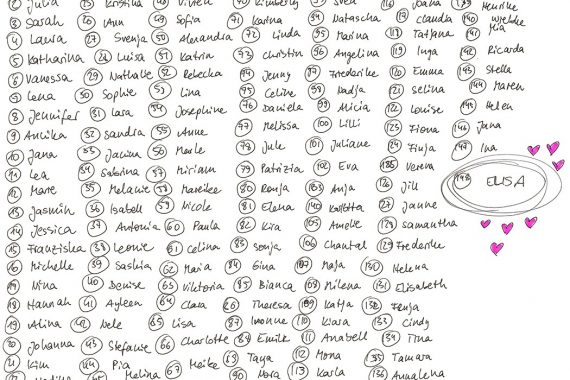 2 Julia
3 Sarah
4 Laura
5 Katharina
6 Vanessa
7 Lena
8 Jennifer
9 Annika
10 Jana
11 Lea
12 Marie
13 Jasmin
14 Jessica
15 Franziska
16 Michelle
17 Nina
18 Hannah
19 Alina
20 Johanna
21 Kim
Kristina
26 Ann
27 Svenja
28 Luisa
29 Nathalie
30 Sophie
31 Lara
32 Sandra
33 Janina
34 Sabrina
35 Melanie
36 Isabell
37 Antonia
38 Leonie
39 Saskia
40 Denise
41 Ayleen
42 Nele
43 Stefanie
44 Pia
Melina
Vivien
49 Sofia
50 Alexandra
51 Katrin
52 Rebecka
53 Lina
54 Josephine
55 Anne
56 Merle
57 Miriam
58 Mareike
59 Nicole
60 Paula
61 Celina
62 Maria
63 Viktoria
64 Clara
65 Lisa
66 Charlotte
67 Meike
Kimberly
71 Karina
72 Linda
73 Christin
74 Jenny
75 Celine
76 Daniela
77 Melissa
78 Jule
79 Patrizia
80 Ronja
81 Elena
82 Kira
83 Sonja
84 Gina
85 Bianca
86 Theresa
87 Ivonne
88 Emilk
89 Tanja
90 Nora
94 Natascha
95 Marina
96 Angelina
97 Friederike
98 Nadja
99 Alicia
100 Lilli
101 Juliane
102 Eva
103 Anja
104 Kalotta
105 Amelie
106 Chantal
107 Maja
108 Milena
109 Katja
110 Kiara
111 Anabell
112 Mona
113 Karla
116 Joana
117 Claudia
118 Tatjana
119 Inga
120 Emma
121 Selina
122 Louise
123 Fiona
124 Finja
125 Verena
126 Jill
127 Janne
128 Samantha
129 Frederike
130 Helena
131 Elisabeth
132 Fenja
133 Cindy
134 Tina
135 Tamara
136 Annalena
139 Henrike
140 Wiebke
141 Mia
142 Ricarda
143 Stella
144 Maren
145 Helen
146 Jana
147 Ina
148 ELISA